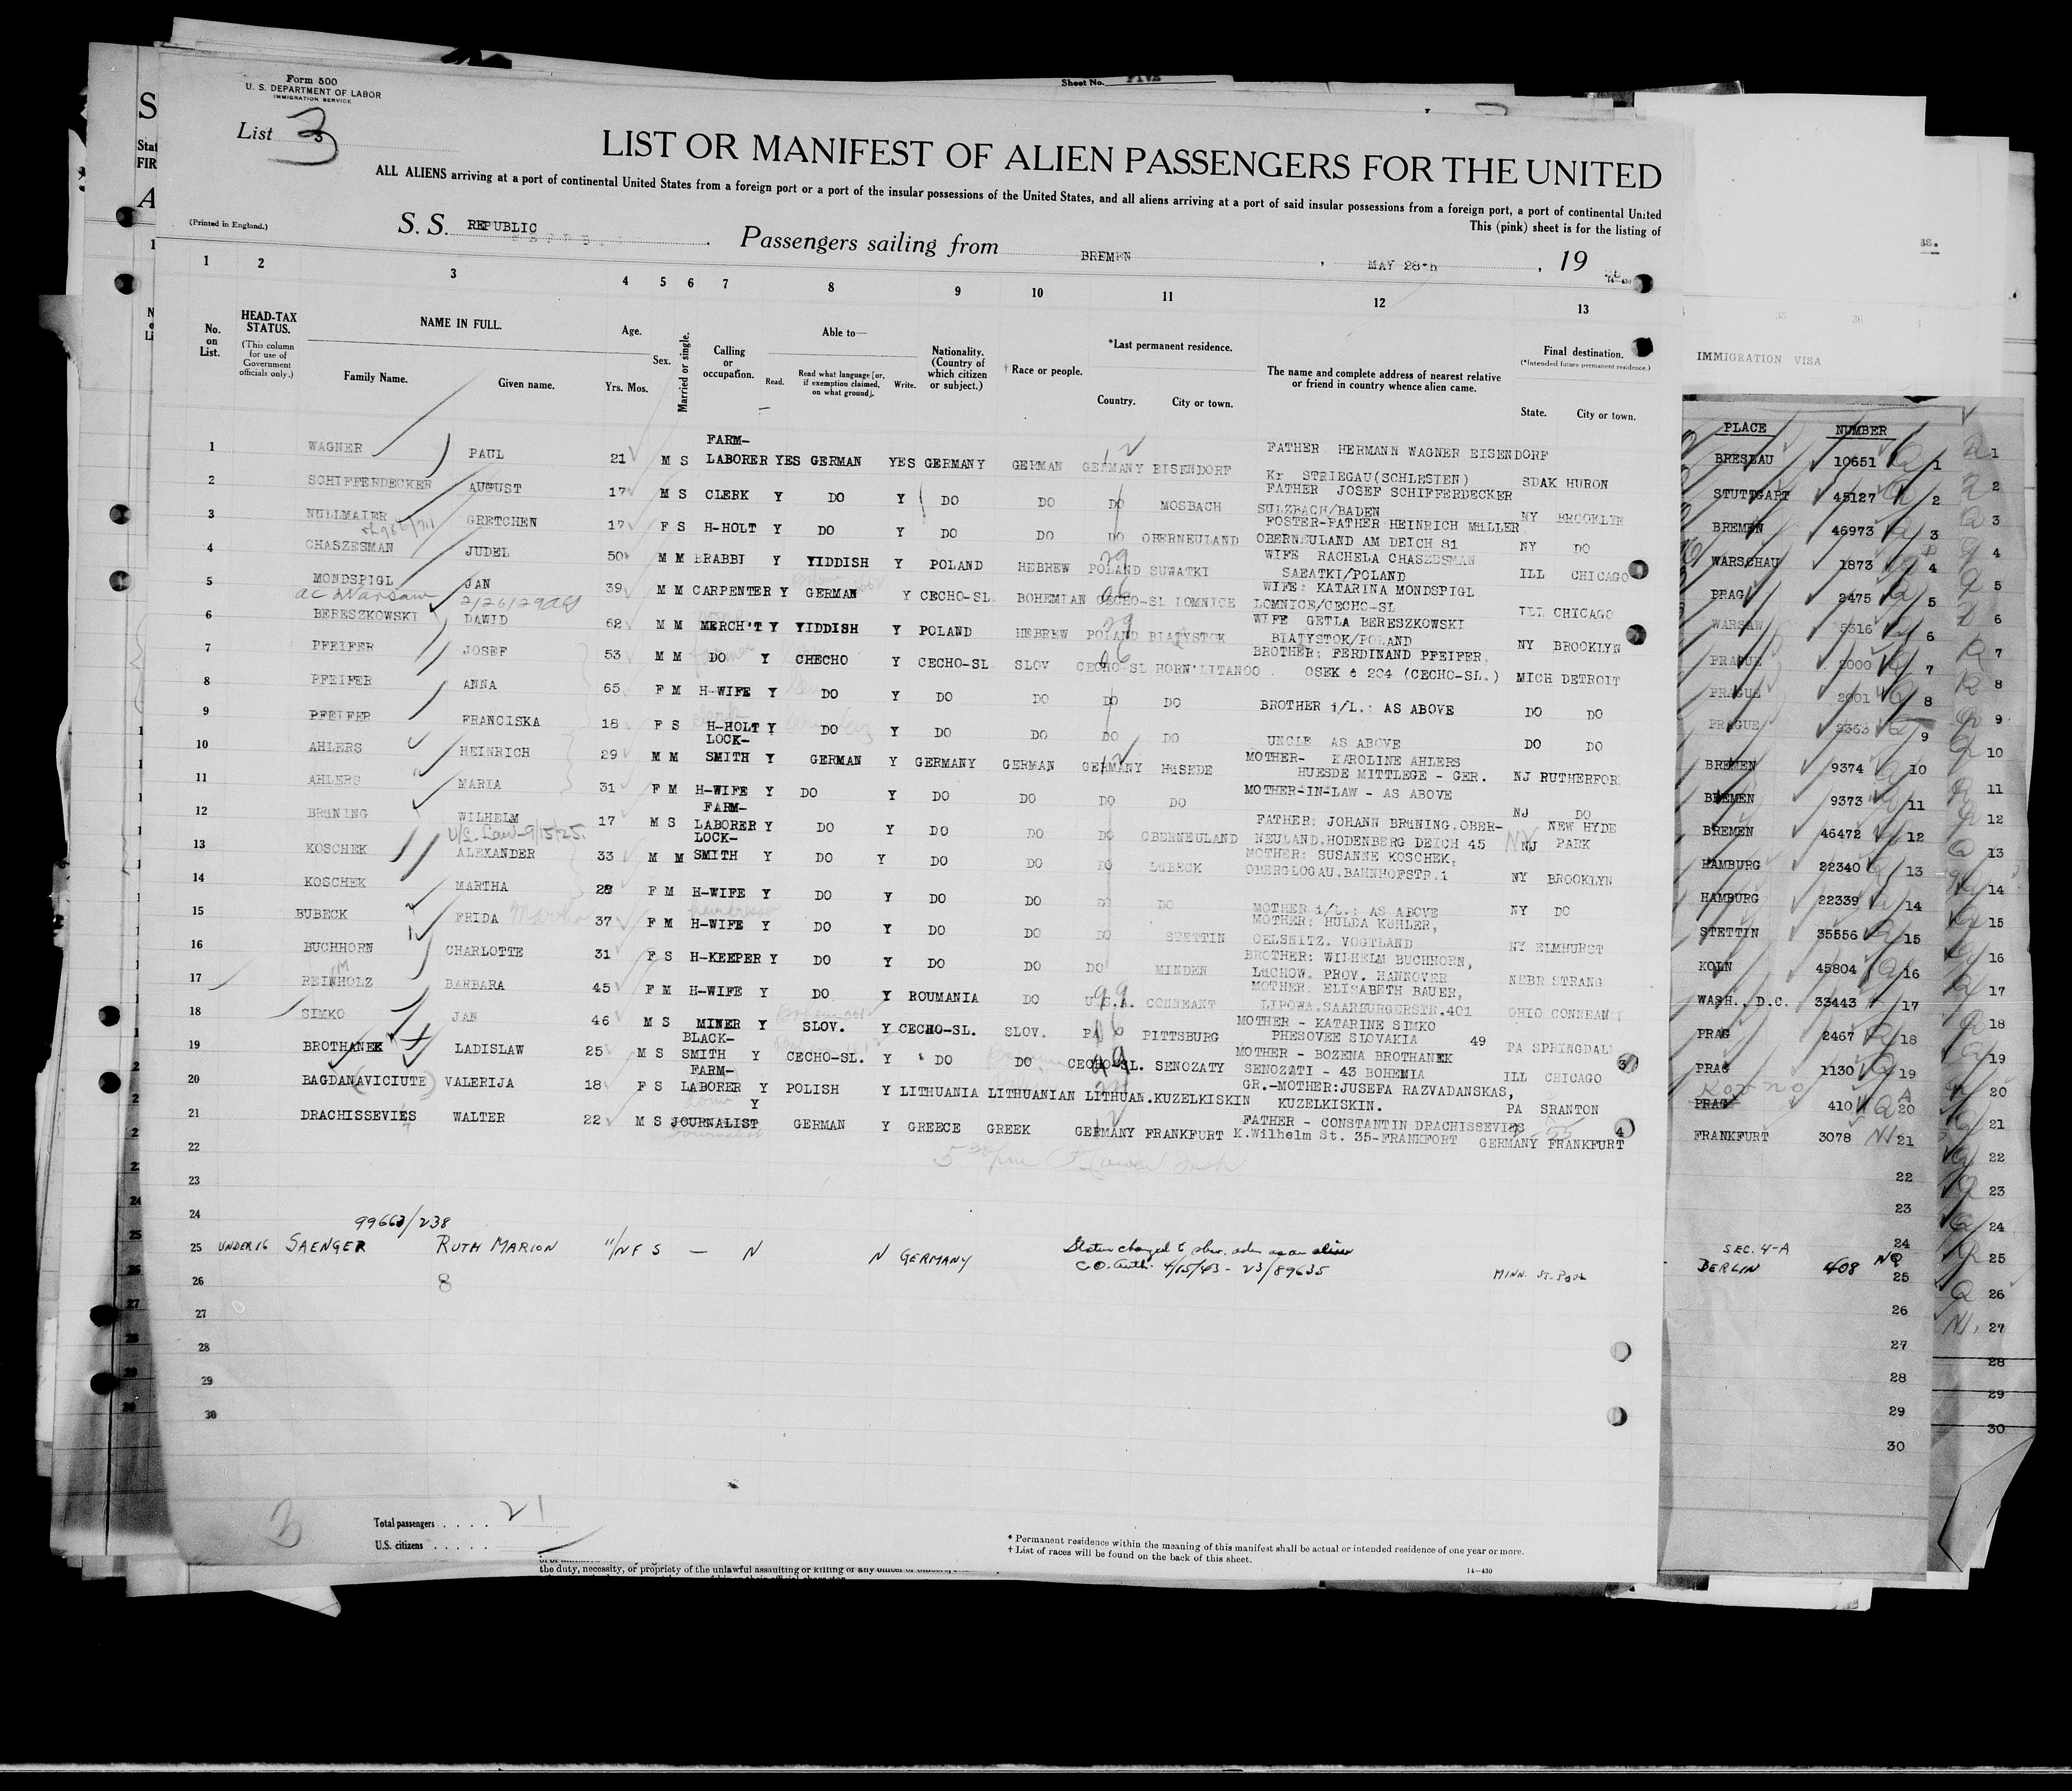 Sheet No. FIVE
Form 500
U. S. DEPARTMENT OF LABOR
IMMIGRATION SERVICE
List 3
LIST OR MANIFEST OF ALIEN PASSENGERS FOR THE UNITED
ALL ALIENS arriving at a port of continental United States from a foreign port or a port of the insular possessions of the United States, and all aliens arriving at a port of said insular possessions from a foreign port, a port of continental United
This (pink) sheet is for the listing of
(Printed in England.)
S. S. REPUBLIC . Passengers sailing from BREMEN , MAY 28th , 19
1 2 3 4 5 6 7 8 9 10 11 12 13
No. on List.
HEAD-TAX STATUS.
(This column for use of Government officials only.)
NAME IN FULL.
Family Name. Given name.
Age.
Yrs. Mos.
Sex.
Married or single.
Calling or occupation.
Able to—
Read. Read what language [or, if exemption claimed, on what ground]. Write.
Nationality. (Country of which citizen or subject.)
† Race or people.
*Last permanent residence.
Country. City or town.
The name and complete address of nearest relative or friend in country whence alien came.
Final destination.
(*Intended future permanent residence.)
State. City or town.
IMMIGRATION VISA
PLACE NUMBER
1 WAGNER PAUL 21 M S FARM-LABORER YES GERMAN YES GERMANY GERMAN GERMANY EISENDORF FATHER HERMANN WAGNER EISENDORF Kr STRIEGAU(SCHLESIEN) SDAK HURON BRESLAU 10651 1
2 SCHIFFERDECKER AUGUST 17 M S CLERK Y DO Y DO DO DO MOSBACH FATHER JOSEF SCHIFFERDECKER SULZBACH/BADEN NY BROOKLYN STUTTGART 45127 2
3 NULLMAIER GRETCHEN 17 F S H-HOLT Y DO Y DO DO DO OBERNEULAND FOSTER-FATHER HEINRICH MüLLER OBERNEULAND AM DEICH 81 NY DO BREMEN 46973 3
4 CHASZESMAN JUDEL 50 M M RABBI Y YIDDISH Y POLAND HEBREW POLAND SUWATKI WIFE RACHELA CHASZESMAN SAEATKI/POLAND ILL CHICAGO WARSCHAU 1873 4
5 MONDSPIGL JAN 39 M M CARPENTER Y GERMAN Y CECHO-SL BOHEMIAN CECHO-SL LOMNICE WIFE: KATARINA MONDSPIGL LOMNICE/CECHO-SL ILL CHICAGO PRAG 2475 5
ac Warsaw 2/26/29
6 BERESZKOWSKI DAWID 62 M M MERCH'T Y YIDDISH Y POLAND HEBREW POLAND BIATYSTOK WIFE GETLA BERESZKOWSKI BIATYSTOK/POLAND NY BROOKLYN WARSAW 5316 6
7 PFEIFER JOSEF 53 M M DO Y CHECHO Y CECHO-SL SLOV CECHO-SL HORN'LITANOO BROTHER: FERDINAND PFEIFER, OSEK č 204 (CECHO-SL.) MICH DETROIT PRAGUE 2000 7
8 PFEIFER ANNA 65 F M H-WIFE Y DO Y DO DO DO DO BROTHER i/L.: AS ABOVE DO DO PRAGUE 2001 8
9 PFEIFER FRANCISKA 18 F S H-HOLT Y DO Y DO DO DO DO UNCLE AS ABOVE DO DO PRAGUE 2363 9
10 AHLERS HEINRICH 29 M M LOCK-SMITH Y GERMAN Y GERMANY GERMAN GERMANY HüSEDE MOTHER- KAROLINE AHLERS HUESDE MITTLEGE - GER. NJ RUTHERFOR BREMEN 9374 10
11 AHLERS MARIA 31 F M H-WIFE Y DO Y DO DO DO DO MOTHER-IN-LAW - AS ABOVE NJ DO BREMEN 9373 11
12 BRüNING WILHELM 17 M S FARM-LABORER Y DO Y DO DO DO OBERNEULAND FATHER: JOHANN BRüNING.OBER-NEULAND.HODENBERG DEICH 45 NY NJ NEW HYDE PARK BREMEN 46472 12
U/S. Law-9/15/25.
13 KOSCHEK ALEXANDER 33 M M LOCK-SMITH Y DO Y DO DO DO LüBECK MOTHER: SUSANNE KOSCHEK, OBERGLOGAU.BAHNHOFSTR.1 NY BROOKLYN HAMBURG 22340 13
14 KOSCHEK MARTHA 28 F M H-WIFE Y DO Y DO DO DO DO MOTHER i/L.: AS ABOVE NY DO HAMBURG 22339 14
15 BUBECK FRIDA Martha 37 F M H-WIFE Y DO Y DO DO DO STETTIN MOTHER: HULDA KöHLER, OELSNITZ. VOGTLAND NY ELMHURST STETTIN 35556 15
16 BUCHHORN CHARLOTTE 31 F S H-KEEPER Y DO Y DO DO DO MINDEN BROTHER: WILHELM BUCHHORN, LüCHOW. PROV. HANNOVER NEBR STRANG KOLN 45804 16
17 REINHOLZ BARBARA 45 F M H-WIFE Y DO Y ROUMANIA DO U.S.A. CONNEANT MOTHER: ELISABETH BAUER, LIPOWA.SAARBURGERSTR.401 OHIO CONNEANT WASH., D.C. 33443 17
18 SIMKO JAN 46 M S MINER Y SLOV. Y CECHO-SL. SLOV. PA PITTSBURG MOTHER - KATARINE SIMKO PHESOVEE SLOVAKIA 49 PA SPRINGDALE PRAG 2467 18
19 BROTHANEK LADISLAW 25 M S BLACK-SMITH Y CECHO-SL. Y DO DO CECHO-SL. SENOZATY MOTHER - BOZENA BROTHANEK SENOZATI - 43 BOHEMIA ILL CHICAGO PRAG 1130 19
20 BAGDANAVICIUTE VALERIJA 18 F S FARM-LABORER Y POLISH Y LITHUANIA LITHUANIAN LITHUAN. KUZELKISKIN GR.-MOTHER:JUSEFA RAZVADANSKAS, KUZELKISKIN. PA SRANTON Kovno PRAG 410 20
21 DRACHISSEVIES WALTER 22 M S JOURNALIST Y GERMAN Y GREECE GREEK GERMANY FRANKFURT FATHER - CONSTANTIN DRACHISSEVIES K.Wilhelm St. 35-FRANKFORT GERMANY FRANKFURT FRANKFURT 3078 21
22
23
24
99663/238
25 UNDER 16 SAENGER RUTH MARION 11/N F S — N N GERMANY Status changed to show adm as an alien MINN. St. Paul SEC. 4-A BERLIN 408 NQ 25
C.O. Auth. 4/15/43 - 23/89635
8
26
27
28
29
30
3
Total passengers . . . . 21
U.S. citizens . . . . .
* Permanent residence within the meaning of this manifest shall be actual or intended residence of one year or more.
† List of races will be found on the back of this sheet.
14—430
the duty, necessity, or propriety of the unlawful assaulting or killing of any officer or